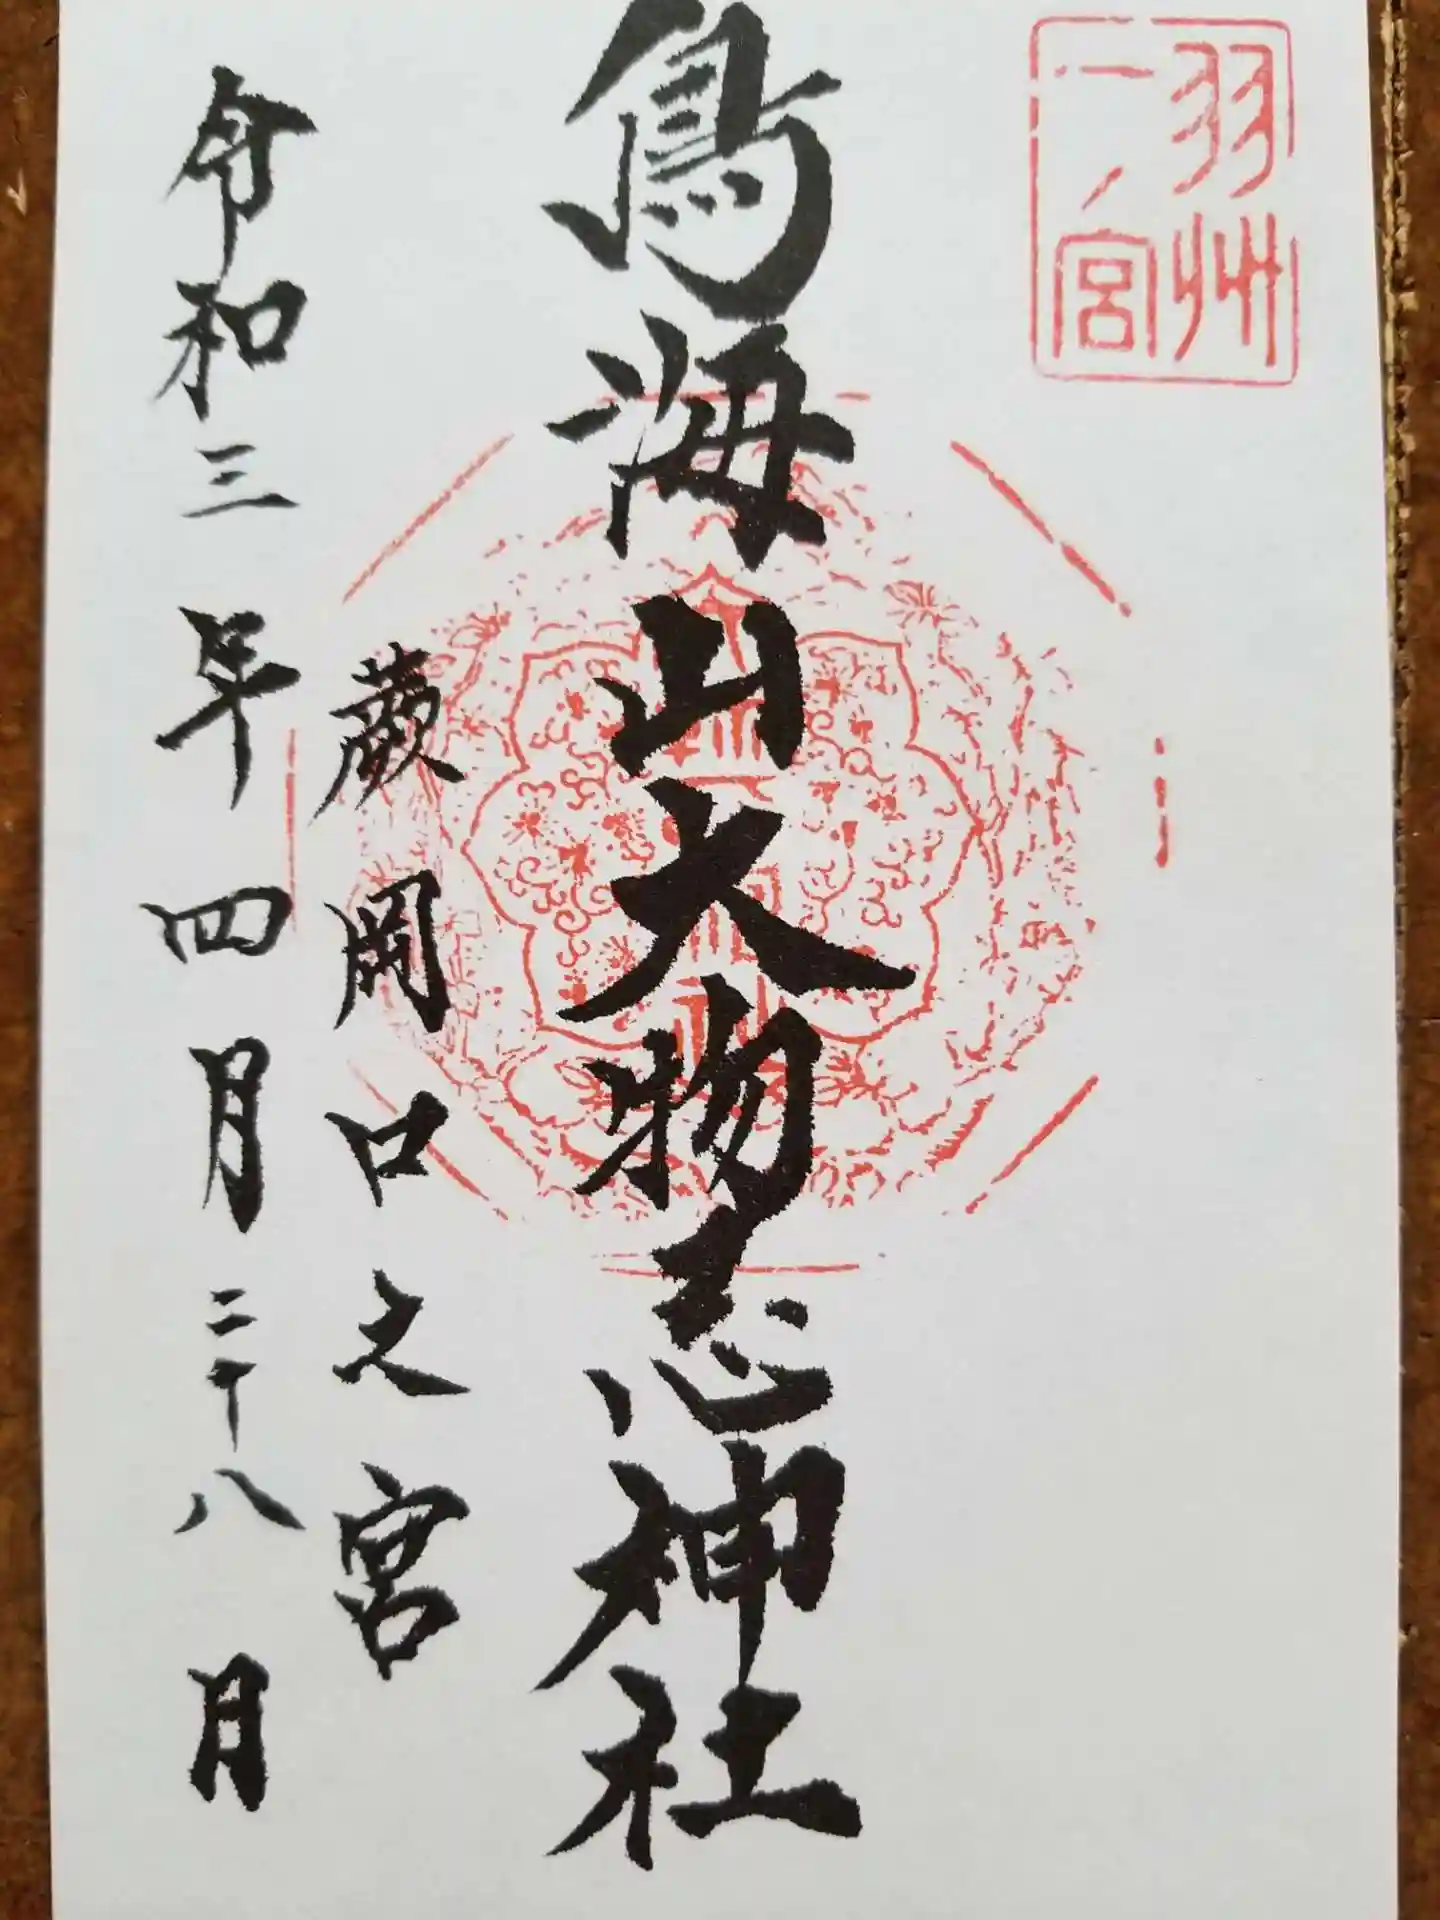 羽州
一ノ宮
鳥海山大物忌神社
蕨岡口之宮
令和三年四月二十八日